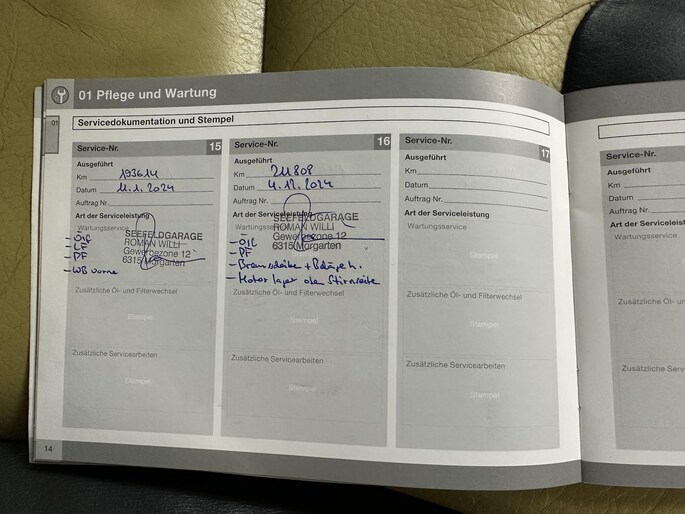 01 Pflege und Wartung
01
Servicedokumentation und Stempel
Service-Nr. 15
Ausgeführt
Km 193614
Datum 11.1.2024
Auftrag Nr.
Art der Serviceleistung
Wartungsservice
SEEFELDGARAGE
ROMAN WILLI
Gewerbezone 12
6315 Morgarten
- ÖlC
- LF
- PF
- WB vorne
Zusätzliche Öl- und Filterwechsel
Stempel
Zusätzliche Servicearbeiten
Stempel
Service-Nr. 16
Ausgeführt
Km 211808
Datum 4.12.2024
Auftrag Nr.
Art der Serviceleistung
Wartungsservice
SEEFELDGARAGE
ROMAN WILLI
Gewerbezone 12
6315 Morgarten
- ÖlC
- PF
- Bremsscheiben + Beläge h.
- Motor lager oben Stirnseite
Zusätzliche Öl- und Filterwechsel
Stempel
Zusätzliche Servicearbeiten
Stempel
Service-Nr. 17
Ausgeführt
Km
Datum
Auftrag Nr.
Art der Serviceleistung
Wartungsservice
Stempel
Zusätzliche Öl- und Filterwechsel
Stempel
Zusätzliche Servicearbeiten
Stempel
14
Service-Nr.
Ausgeführt
Km
Datum
Auftrag Nr.
Art der Servicel
Wartungsservice
Zusätzliche Öl-
Zusätzliche Serv